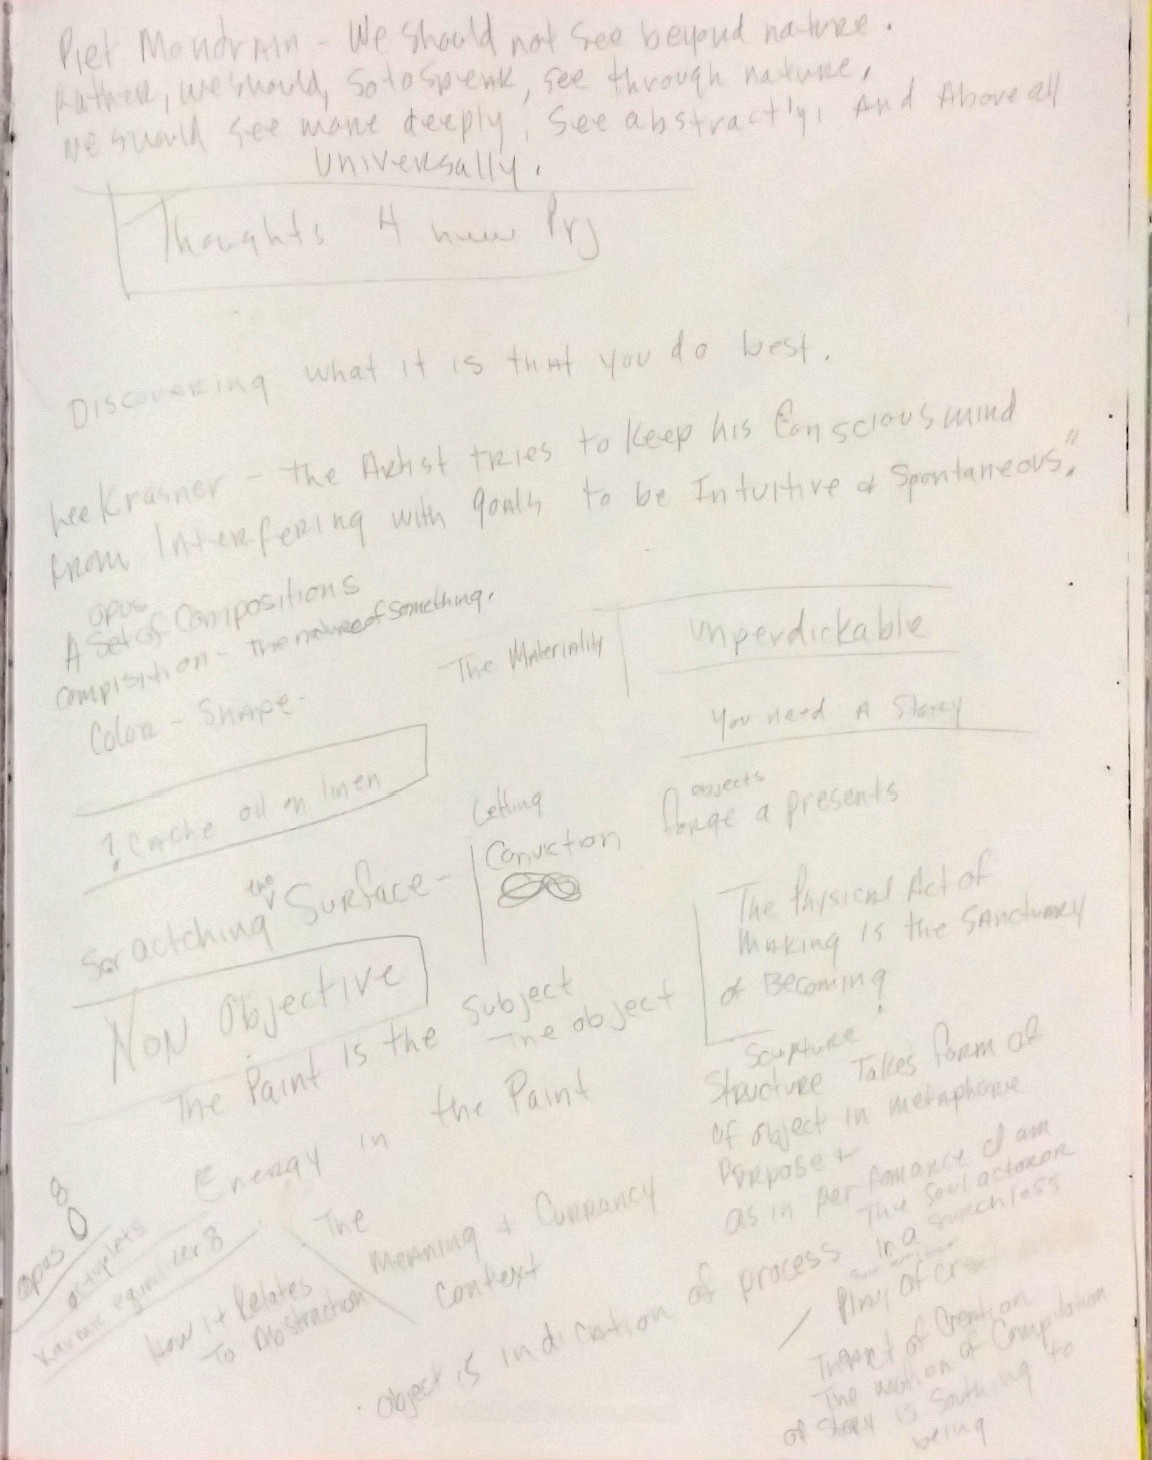 Piet Mondrain - We should not see beyond nature.
Rather, we should, so to speak, see through nature,
we should see more deeply, see abstractly, And Above all
Universally.
Thoughts 4 new Prj
Discovering what it is that you do best.
Lee Krasner - the Artist tries to keep his Conscious mind
from Interfering with goals to be Intuitive & Spontaneous."
opus
A Set of Compositions
Compisition - The nature of something.
Color - Shape -
The Materiality
Unperdickable
You need A Story
! Cache oil on linen
Scractching the Surface -
Letting
Conviction
objects
forge a presents
The Physical Act of
Making is the Sanctuary
of Becoming
Non Objective
The Paint is the Subject
The object
the Paint
Energy in
Scupture
Structure Takes form of
of object in metaphore
Purpose +
as in perfomance I am
The Soul actoror
in a
Play of
The Art of Creation
The motion of Compilation
of Story is South ing to
being
8
0
opus
octuplets
Karmic equalizer 8
How it Relates
To Abstraction
The
Meaning & Currancy
Context
Object is indication of process